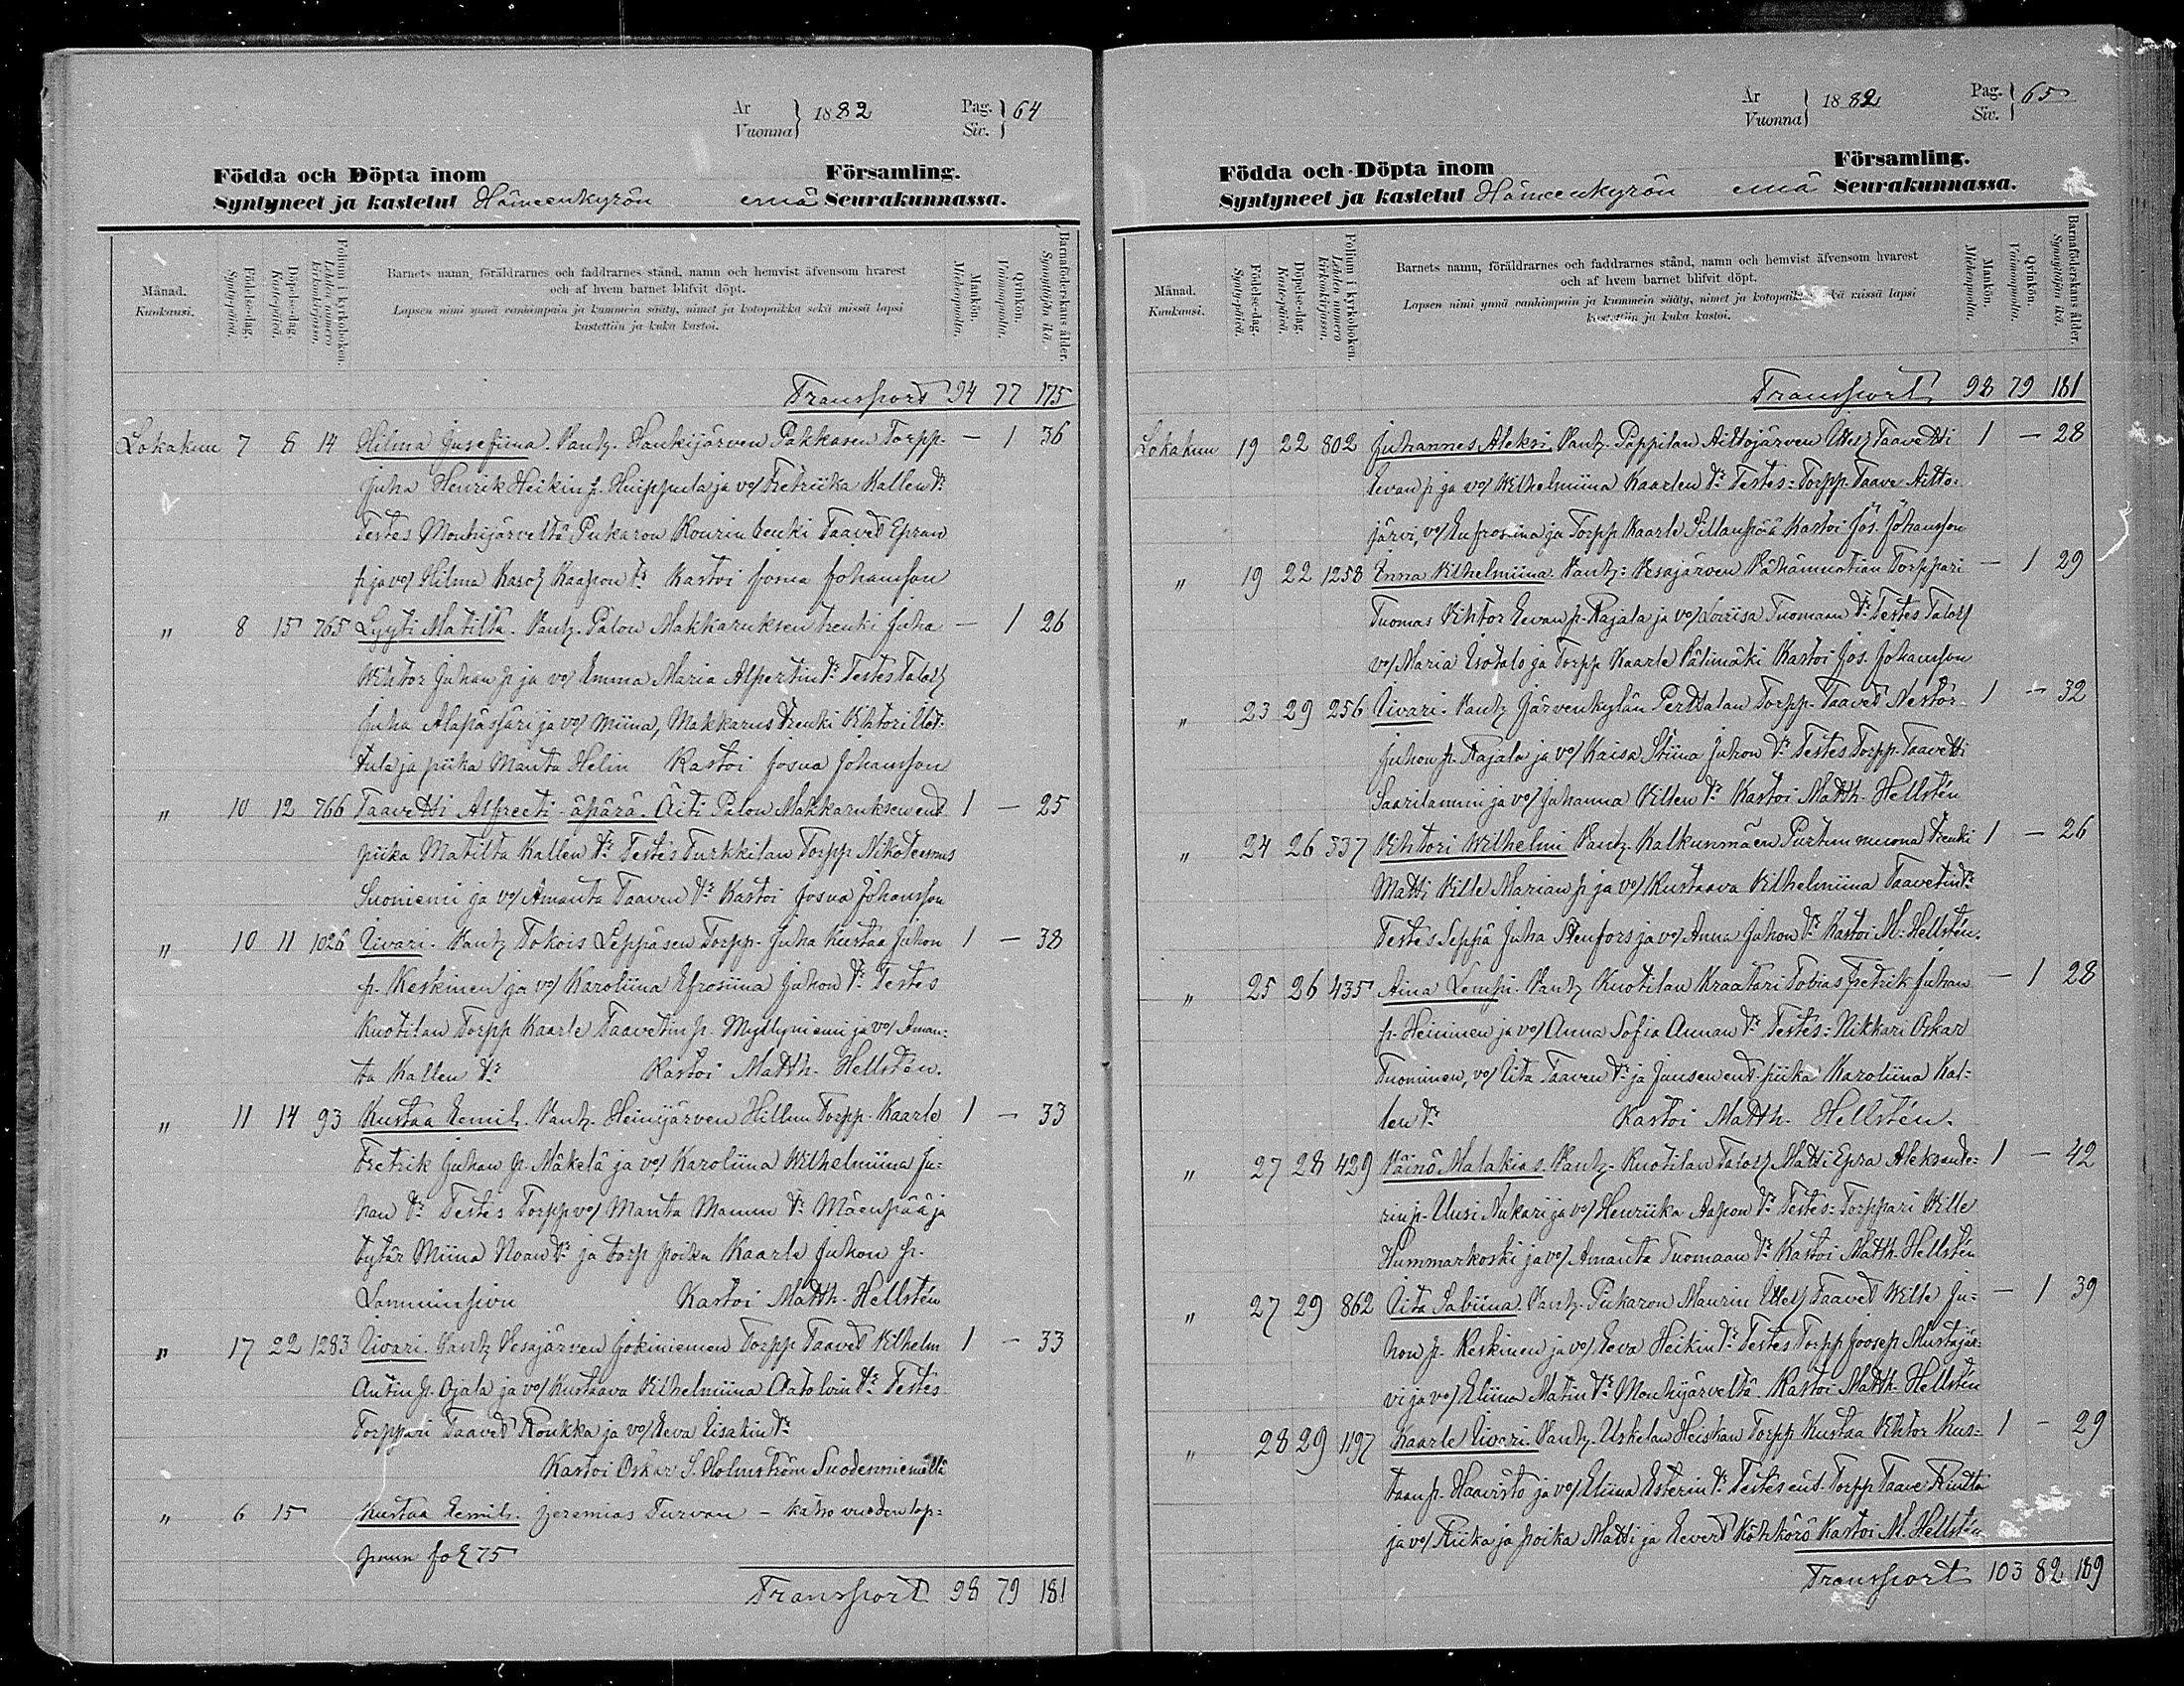 År
Vuonna } 1882 Pag.
Siv. } 64
Födda och Döpta inom Församling.
Syntyneet ja kastetut Hämeenkyrön emä Seurakunnassa.
Månad.
Kuukausi.
Födelse-dag.
Syntypäivä.
Döpelse-dag.
Kastepäivä.
Folium i kyrkoboken.
Lehden numero kirkonkirjassa.
Barnets namn, föräldrarnes och faddrarnes stånd, namn och hemvist äfvensom hvarest
och af hvem barnet blifvit döpt.
Lapsen nimi ynnä vanhimpain ja kummein sääty, nimet ja kotopaikka sekä missä lapsi
kastettiin ja kuka kastoi.
Mankön.
Miehenpuolia.
Qvinkön.
Vaimonpuolia.
Barnaföderskans ålder.
Synnyttäjän ikä.
Transport 94 77 175
Lokakuu 7 8 14 Hilma Jusefiina. Vanh. Hankijärven Pakkasen Torpp. — 1 36
Juha Henrik Heikin p. Huippula ja vo/ Fretriika Kallen tr
Testes Mouhijärveltä Pukaron Kourin renki Taavet Epran
p. ja vo/ Hilma Kasoj Kaapon tr Kastoi Josua Johansson
" 8 15 765 Lyyti Matilta. Vanh. Palon Makkaruksen trenki Juha — 1 26
Wihtor Juhan p. ja vo/ Emma Maria Alpertin tr Testes Taloll
Juha Alapässäri ja vo/ Miina, Makkarus trenki Vihtori Uot-
tula ja piika Manta Helin Kastoi Josua Johansson
" 10 12 766 Taavetti Alfreeti - äpärä. Äiti Palon Makkaruksen ent. 1 — 25
piika Matilta Kallen tr Testes Turkkilan Torpp Nikoteemus
Suoniemi ja vo/ Amanta Taaven tr Kastoi Josua Johansson
" 10 11 1026 Iivari. Vanh. Tokois Leppäsen Torpp. Juha Kustaa Juhon 1 — 38
p. Keskinen ja vo/ Karoliina Efrosiina Juhon tr Testes
Kuotilan Torpp Kaarle Taavetin p. Myllyniemi ja vo/ Aman-
ta Kallen tr Kastoi Matth. Hellstén.
" 11 14 93 Kustaa Eemil. Vanh. Heinijärven Hillun Torpp. Kaarle 1 — 33
Fretrik Juhan p. Mäkelä ja vo/ Karoliina Wilhelmiina Ju-
han tr Testes Torpp vo/ Manta Manun tr Mäenpää ja
tytär Miina Noan tr ja torp poika Kaarle Juhon p.
Lamminsivu Kastoi Matth. Hellstén
" 17 22 1283 Iivari. Vanh Vesajärven Jokiniemen Torpp Taavet Vilhelm 1 — 33
Antin p. Ojala ja vo/ Kustaava Vilhelmiina Aatolvin tr Testes
Torppari Taavet Roukka ja vo/ Eeva Iisakin tr
Kastoi Oskar S. Holmström Suodenniemellä
" 6 15 Kustaa Eemil. Jeremias Turvan — katso vuoden lop-
puun fol 75
Transport 98 79 181
År
Vuonna } 1882 Pag.
Siv. } 65
Födda och Döpta inom Församling.
Syntyneet ja kastetut Hämeenkyrön emä Seurakunnassa.
Månad.
Kuukausi.
Födelse-dag.
Syntypäivä.
Döpelse-dag.
Kastepäivä.
Folium i kyrkoboken.
Lehden numero kirkonkirjassa.
Barnets namn, föräldrarnes och faddrarnes stånd, namn och hemvist äfvensom hvarest
och af hvem barnet blifvit döpt.
Lapsen nimi ynnä vanhimpain ja kummein sääty, nimet ja kotopaikka sekä missä lapsi
kastettiin ja kuka kastoi.
Mankön.
Miehenpuolia.
Qvinkön.
Vaimonpuolia.
Barnaföderskans ålder.
Synnyttäjän ikä.
Transport 98 79 181
Lokakuu 19 22 802 Juhannes Aleksi. Vanh. Pappilan Aittojärven Taavetti 1 — 28
Eevan p. ja vo/ Wilhelmiina Kaarlen tr Testes: Torpp. Taave Aitto-
järvi, vo/ Eufrosina ja Torpp Kaarle Sillanpää Kastoi Jos. Johansson
" 19 22 1258 Enna Vilhelmiina. Vanh: Vesajärven Vähämuotian Torppari — 1 29
Tuomas Vihtor Eevan p. Rajala ja vo/ Loviisa Tuomaan tr Testes Taloll
vo/ Maria Isotalo ja Torpp Kaarle Välimäki Kastoi Jos. Johansson
" 23 29 256 Iivari. Vanh Järvenkylän Perttalan Torpp. Taavet Nestor 1 — 32
Juhon p. Rajala ja vo/ Kaisa Stiina Juhon tr Testes Torpp. Taavetti
Saarilammi ja vo/ Johanna Villen tr Kastoi Matth. Hellstén
" 24 26 537 Vihtori Wilhelmi Vanh. Kalkunmäen Purtun muona trenki 1 — 26
Matti Ville Marian p. ja vo/ Kustaava Vilhelmiina Taavetin tr
Testes Seppä Juha Stenfors ja vo/ Anna Juhon tr Kastoi M. Hellstén.
" 25 26 435 Aina Lempi. Vanh Kuotilan Kraatari Tobias Fretrik Juhan — 1 28
p. Heininen ja vo/ Anna Sofia Annan tr Testes: Nikkari Oskar
Tuominen, vo/ Iita Taaven tr ja Junsen ent. piika Karoliina Kal-
len tr Kastoi Matth. Hellstén.
" 27 28 429 Väinö Malakias. Vanh. Kuotilan Taloll Matti Epra Aleksante- 1 — 42
rin p. Uusi Nukari ja vo/ Henriika Aapon tr Testes: Torppari Wille
Hummarkoski ja vo/ Amanta Tuomaan tr Kastoi Matth. Hellstén
" 27 29 862 Iita Sabiina. Vanh. Pukaron Maurin Taavet Wille Ju- — 1 39
hon p. Keskinen ja vo/ Eeva Heikin tr Testes Torpp Joosep Mustajär-
vi ja vo/ Eliina Matin tr Mouhijärveltä. Kastoi Matth. Hellstén
" 28 29 1197 Kaarle Iivari. Vanh. Uskelan Heiskan Torpp Kustaa Vihtor Kus- 1 — 29
taan p. Haavisto ja vo/ Eliina Esterin tr Testes ent. Torpp Taave Riutta
ja vo/ Riika ja poika Matti ja Eevert Köhkörö Kastoi M. Hellstén
Transport 103 82 189